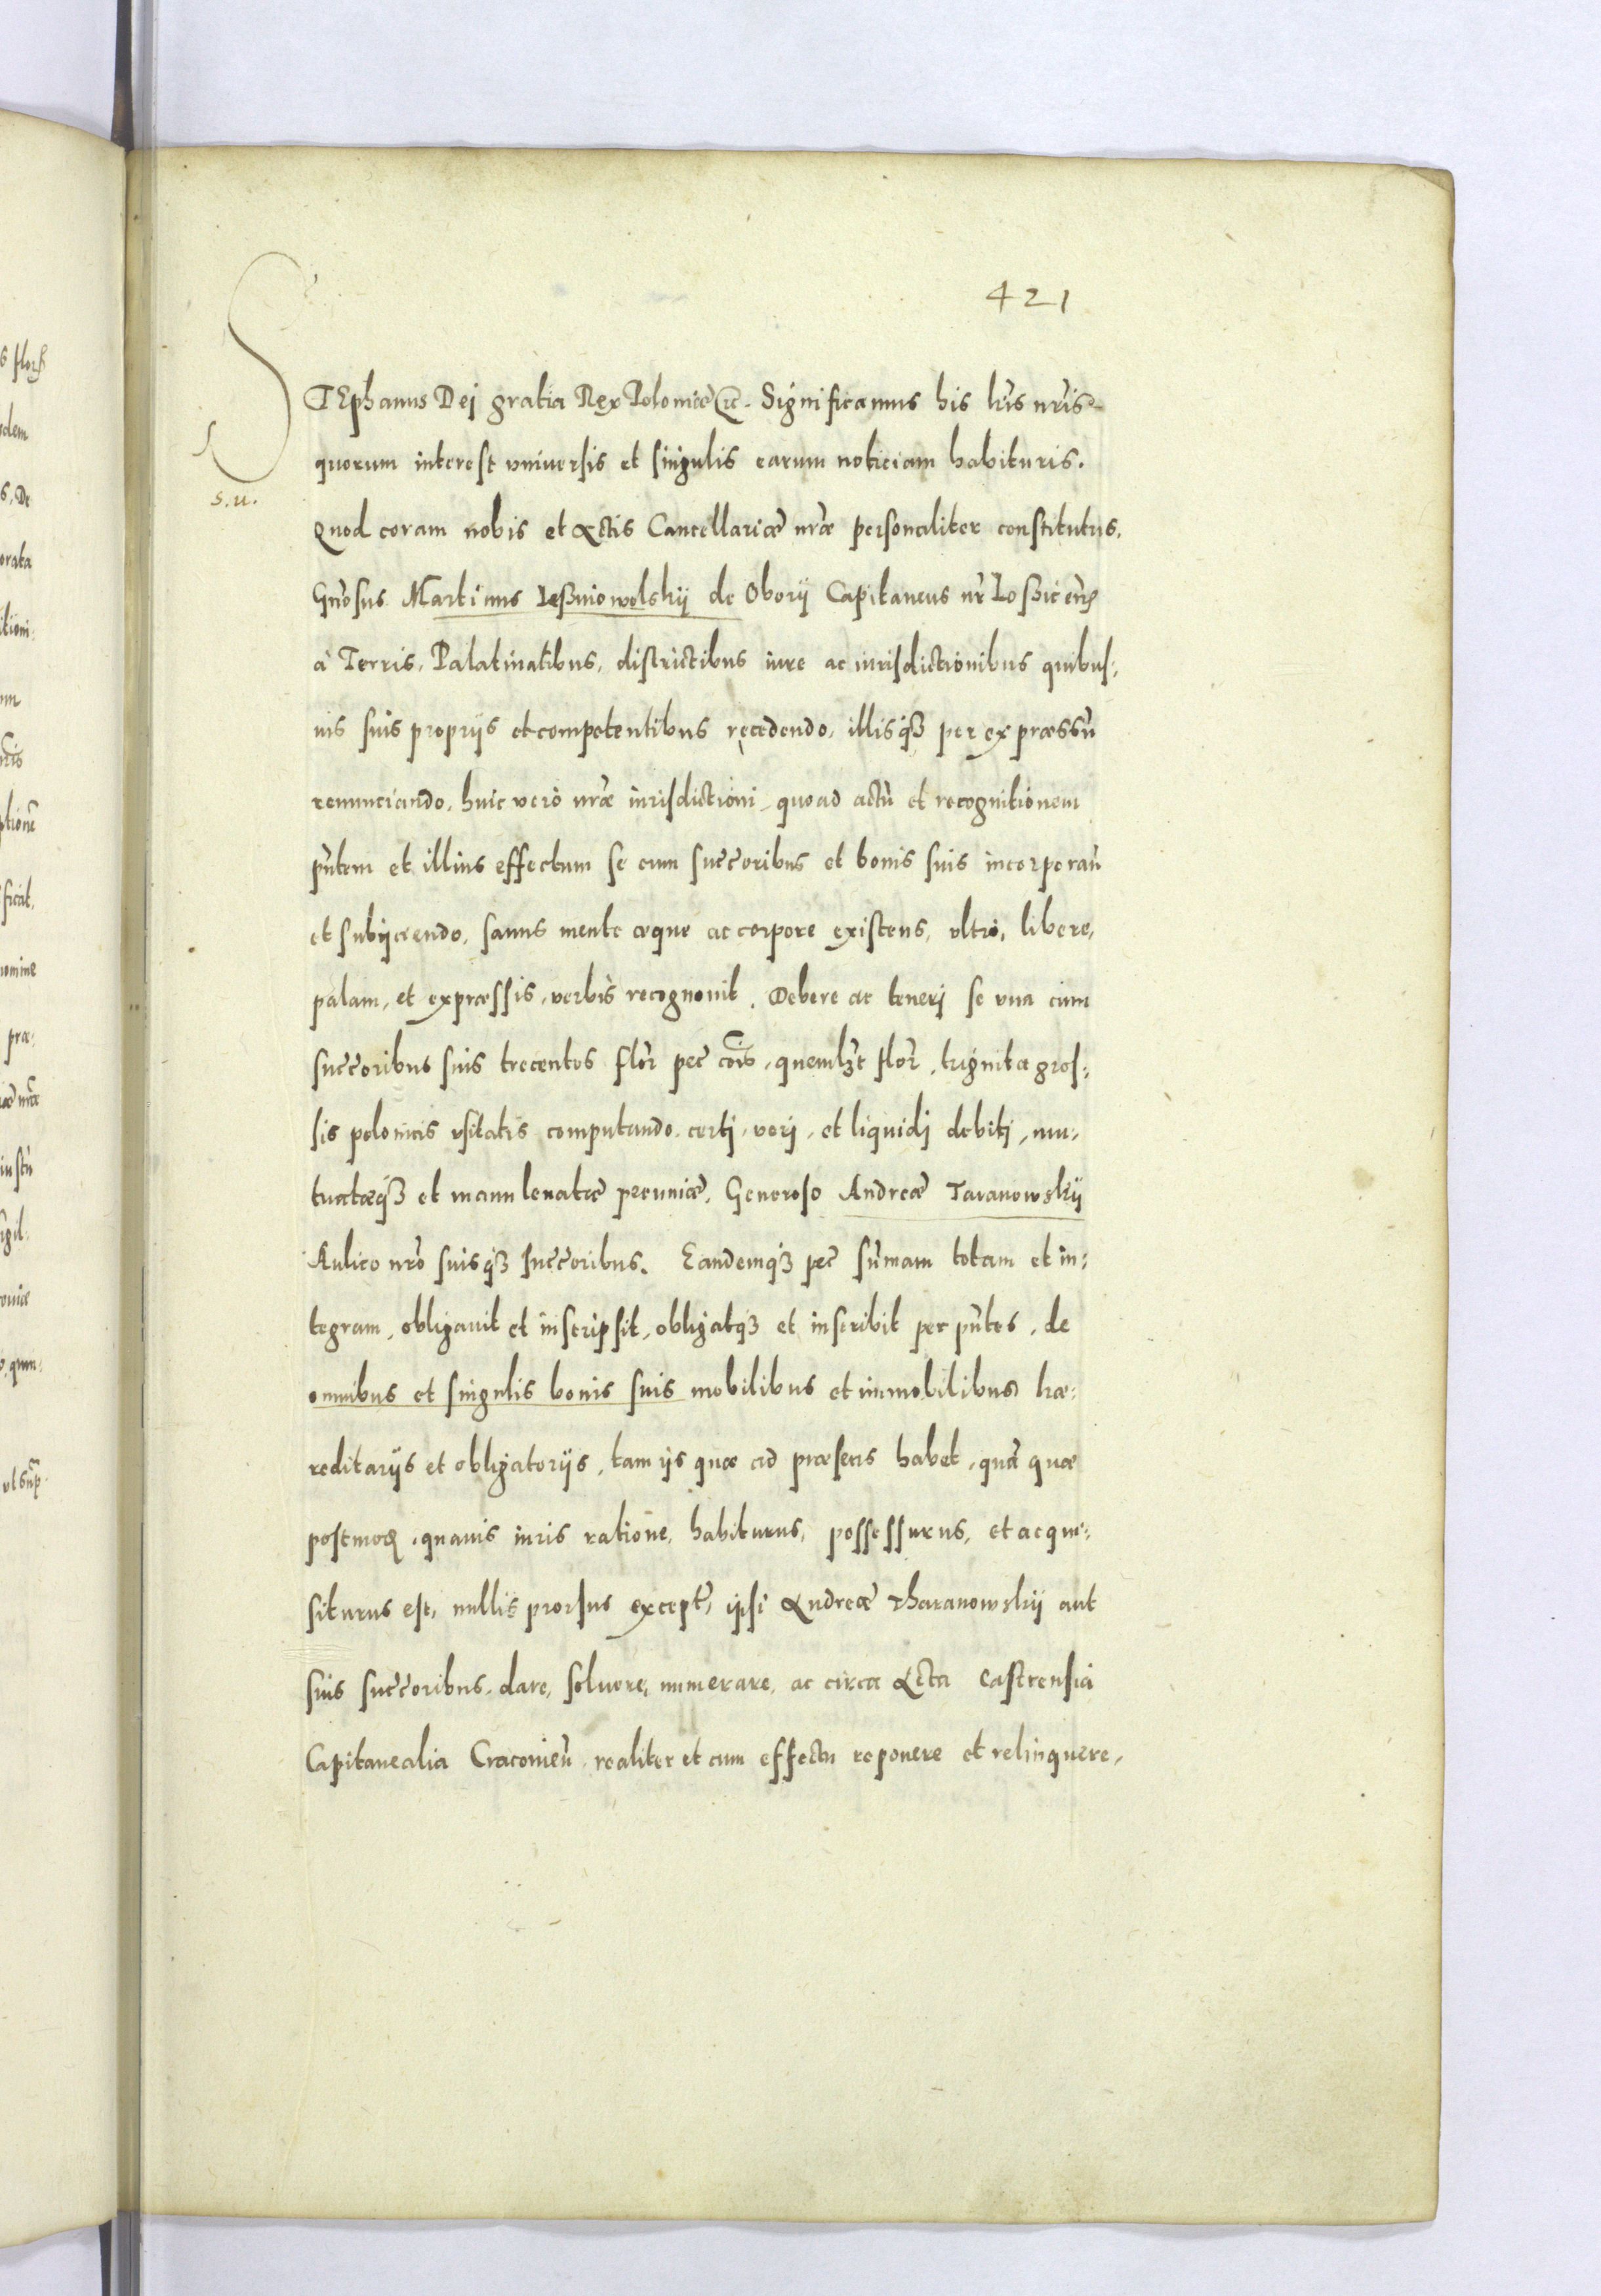 421
STEphanus Dej gratia Rex Poloniæ etc. Significamus his lr̃is nr̃is
quorum interest vniuersis et singulis earum noticiam habituris.
s. u.
Quod coram nobis et Actis Cancellariæ nr̃æ personaliter constitutus.
Gnr̃osus Martinus Leßniowolskij de Oborÿ Capitaneus nr̃ Loßicen̄
à Terris, Palatinatibus, districtibus iure ac iurisdictionibus quibus,
uis suis proprijs et competentibus recedendo, illisqȝ per expræssū
renunciando, huic verò nr̃æ iurisdictioni, quoad actū et recognitionem
pn̄tem et illius effectum se cum succ̄oribus et bonis suis incorporan̄
et subijciendo, sanus mente æque ac corpore existens, vltrò, libere,
palam, et expræssis, verbis recognouit. Debere ac tenerj se vna cum
succ̄oribus suis trecentos flor̄ pec̄ cōis, quemlȝt flor̄, triginta gros,
sis polonicis vsitatis computando. certj, verj, et liquidj debitj, mu,
tuatæqȝ et manulenatæ pecuniæ, Generoso Andreæ Taranowskÿ
Aulico nr̃o suisqȝ succ̄oribus. Eandemqȝ pec̄ sum̄am totam et in,
tegram, obligauit et inscripsit, obligatqȝ et inscribit per pn̄tes, de
omnibus et singulis bonis suis mobilibus et immobilibus hæ,
reditarijs et obligatorijs, tam ijs quæ ad præsens habet, quā quæ
postmod̄, quauis iuris ratione, habiturus, possessurus, et acqui,
siturus est, nullis prorsus except̄, ipsi Andreæ Tharanowskÿ aut
suis succ̄oribus, dare, soluere, numerare, ac circa Acta Castrensia
Capitanealia Cracouien̄ realiter et cum effectu reponere et relinquere,